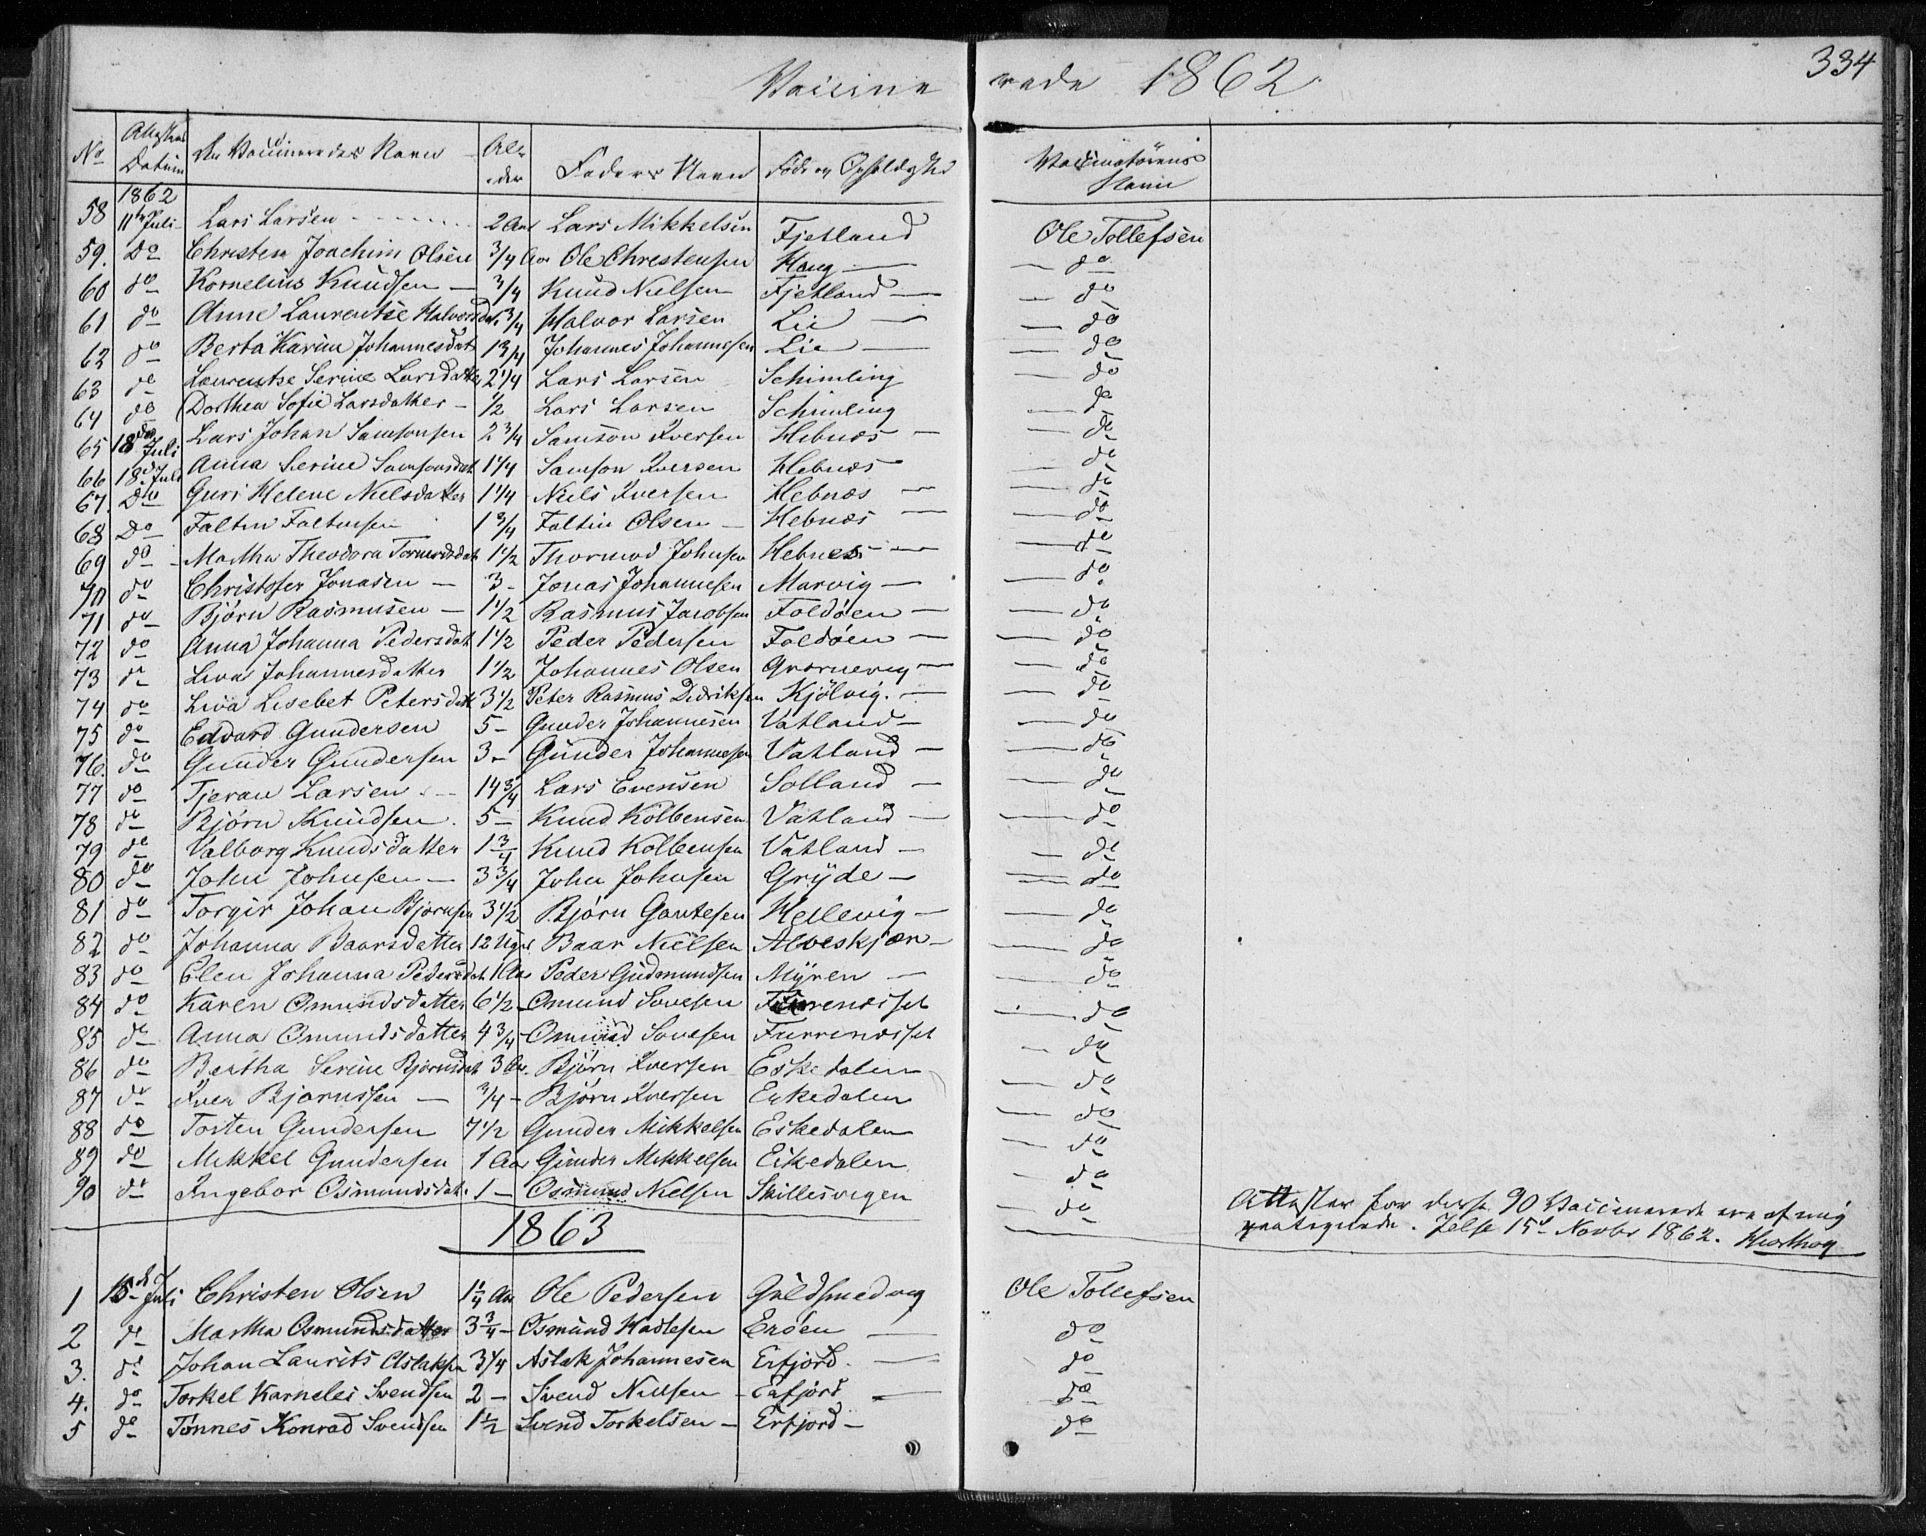 Vaccine rede 1862. 334
No Attestens Datum De Vaccineredes Navn Alder Faders Navn Føde og Opholdssted Vaccinatørens Navn
1862
58 11te Juli Lars Larsen 2 Aar Lars Mikkelsen Fjetland Ole Tollefsen
59. Do Christen Joachim Olsen 3/4 Aar Ole Christensen Haug — do
60 do Kornelius Knudsen — 3/4 Knud Nielsen Fjetland — do
61 do Anne Laurentse Halvorsdat. 3/4 Halvor Larsen Lie — do
62 do Berta Karine Johannesdat 1 3/4 Johannes Johannesen Lie — do
63 do Laurentse Serine Larsdatter 2 1/4 Lars Larsen Schimling — do
64 do Dorthea Sofie Larsdatter — 1/2 Lars Larsen Schimling — do
65 18de Juli Lars Johan Samsonsen 2 3/4 Samson Iversen Hebnes — do
66 18d Juli Anna Serine Samsonsdat 1 1/4 Samson Iversen Hebnes do
67. Do Guri Helene Nielsdatter 1 1/4 Niels Iversen Hebnes — do
68 Do Faltin Faltinsen 1 3/4 Faltin Olsen — Hebnes — do
69 do Martha Theodora Tormodsdat 1 1/2 Thormod Johnsen Hebnes — do
70 do Christofer Jonasen — 3 - Jonas Johannesen Marvig — do
71 do Bjørn Rasmusen — 1 1/2 Rasmus Jacobsen Foldøen — do
72 do Anna Johanna Pedersdat 1 1/2 Peder Pedersen Foldøen — do
73 do Liva Johannesdatter 1 1/2 Johannes Olsen Gvarnevig — do
74 do Liva Lisebet Petersdat 3 1/2 Peter Rasmus Didriksen Kjölvig. — do
75 do Edvard Gundersen 5 - Gunder Johannesen Vatland — do
76. do Gunder Gundersen 3 - Gunder Johannesen Vatland — do
77 do Tjeran Larsen 14 3/4 Lars Evensen Solland — do
78 do Bjørn Knudsen. 5 - Knud Kolbensen Vatland — do
79 do Valborg Knudsdatter 1 3/4 Knud Kolbensen Vatland — do
80 do John Johnsen — 3 3/4 John Johnsen Grýde — do
81 do Torgir Johan Bjørnsen 3 1/2 Bjørn Gautesen Hellevig — do
82 do Johanna Baarsdatter 12 Uger Baar Nielsen Alveskjær — do
83 do Elen Johanna Pedersdat. 1 Aar Peder Gudmundsen Myren — do
84 do Karen Osmundsdatter 6 1/2 Osmund Sovesen Furrenæsset — do
85 do Anna Osmundsdatter 4 3/4 Osmund Sovesen Furrenæsset — do
86 do Bertha Serine Bjørnsdat 3 Aar. Bjørn Iversen Eskedalen — do
87 do Iver Bjørnssen — 3/4 - Bjørn Iversen Eskedalen — do
88 do Tosten Gundersen 7 1/2 Gunder Mikkelsen Eskedalen — do
89 do Mikkel Gundersen 1 Aar Gunder Mikkelsen Eikedalen — do
90 do Ingebor Osmundsdat. 1 — Osmund Nielsen Skillesvigen — do
Attester for disse 90 Vaccinerede ere af mig
Jelse 15d Novbr 1862.
1863
1 15de Juli Christen Olsen 1 1/4 Aar Ole Pedersen Guldsmedvig Ole Tollefsen
2 do Martha Osmundsdatter 3 3/4 - Osmund Hadlesen Erøen — do
3. do Johan Laurits Aslaksen 3/4 Aslak Johannesen Erfjord. — do
4. do Torkel Karneles Svendsen 2 - Svend Nilsen — Erfjord — do
5 do Tønnes Konrad Svendsen 1 1/2 Svend Torkelsen — Erfjord — do